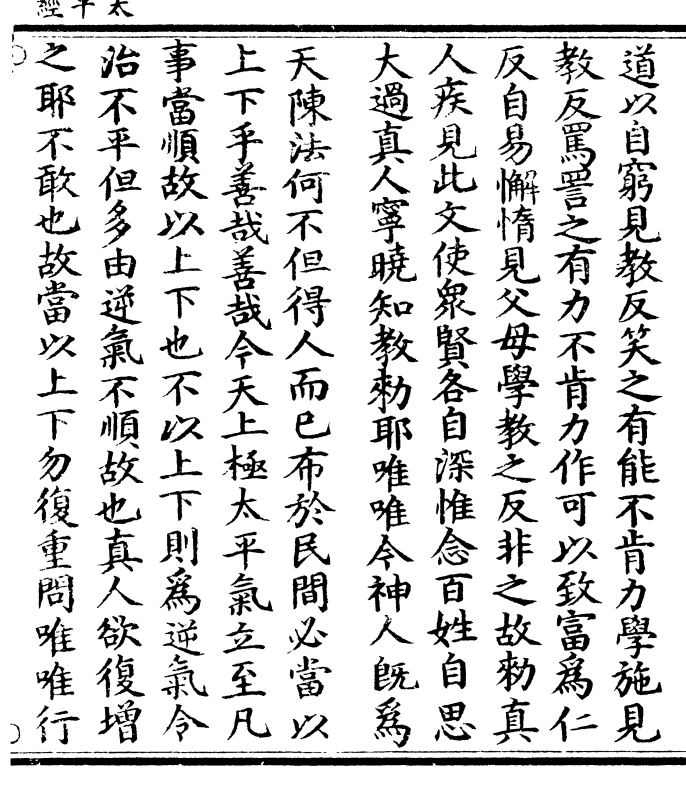 太平經
道以自窮見教反笑之有能不肯力學施見
教反罵詈之有力不肯力作可以致富爲仁
反自易懈惰見父母學教之反非之故勑真
人疾見此文使衆賢各自深惟念百姓自思
大過真人寧曉知教勑耶唯唯今神人旣爲
天陳法何不但得人而已布於民間必當以
上下乎善哉善哉今天上極太平氣立至凡
事當順故以上下也不以上下則爲逆氣令
治不平但多由逆氣不順故也真人欲復增
之耶不敢也故當以上下勿復重問唯唯行